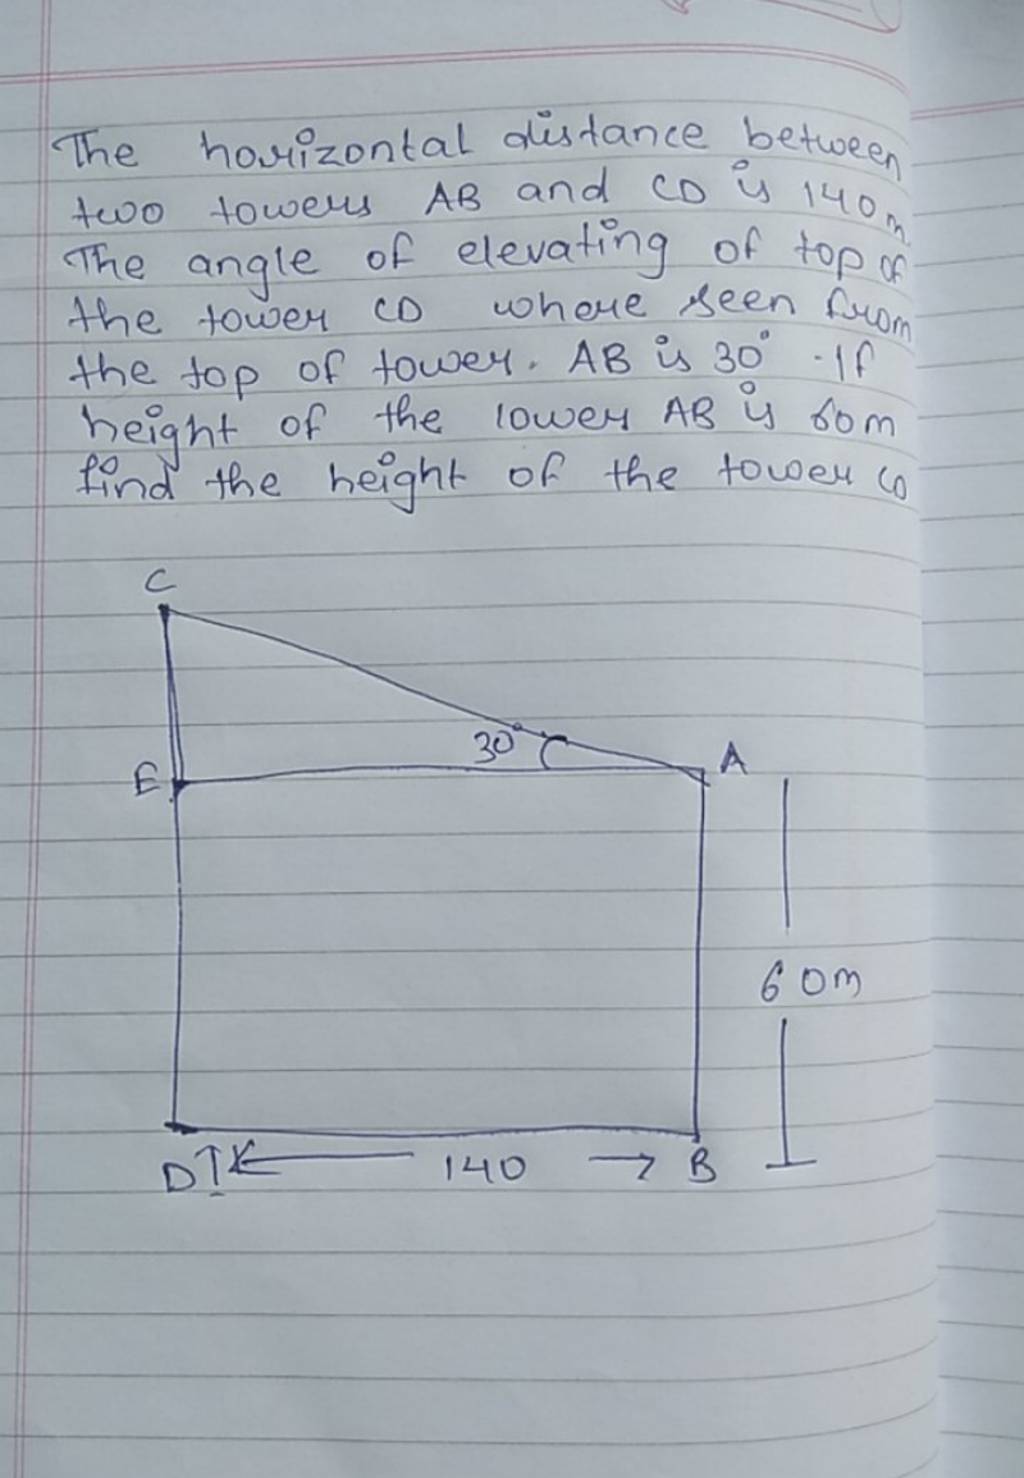 The horizontal distance between
two towers AB and CD is 140m.
The angle of elevating of top of
the tower CD where seen from
the top of tower. AB is 30° . If
height of the lower AB is 60m
find the height of the tower CD
C
30°
A
E
60m
D
140
B